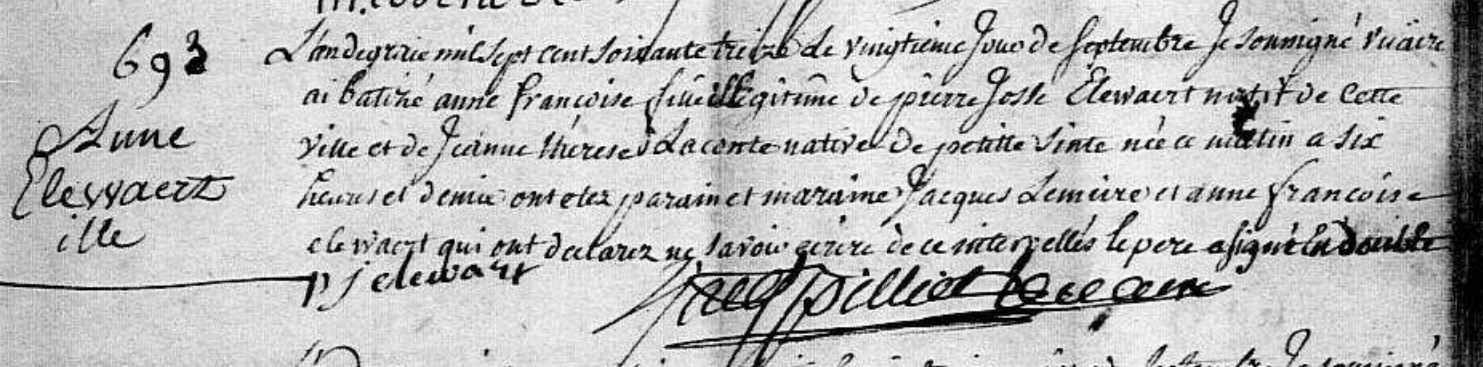 693
Anne
Elewaert
ille
L'an de grace mil sept cent soixante treize le vingtieme Jour de septembre Je soussigné vicaire
ai batizé anne françoise fille légitime de pierre Josse Elewaert natif de cette
ville et de Jeanne thérese Laconte native de petitte sinte née ce matin a six
heures et demie ont etez parain et maraine Jacques Lemeire et anne françoise
elewaert qui ont declarez ne savoir ecrire de ce intervellés le pere a signé en double
p j elewaert